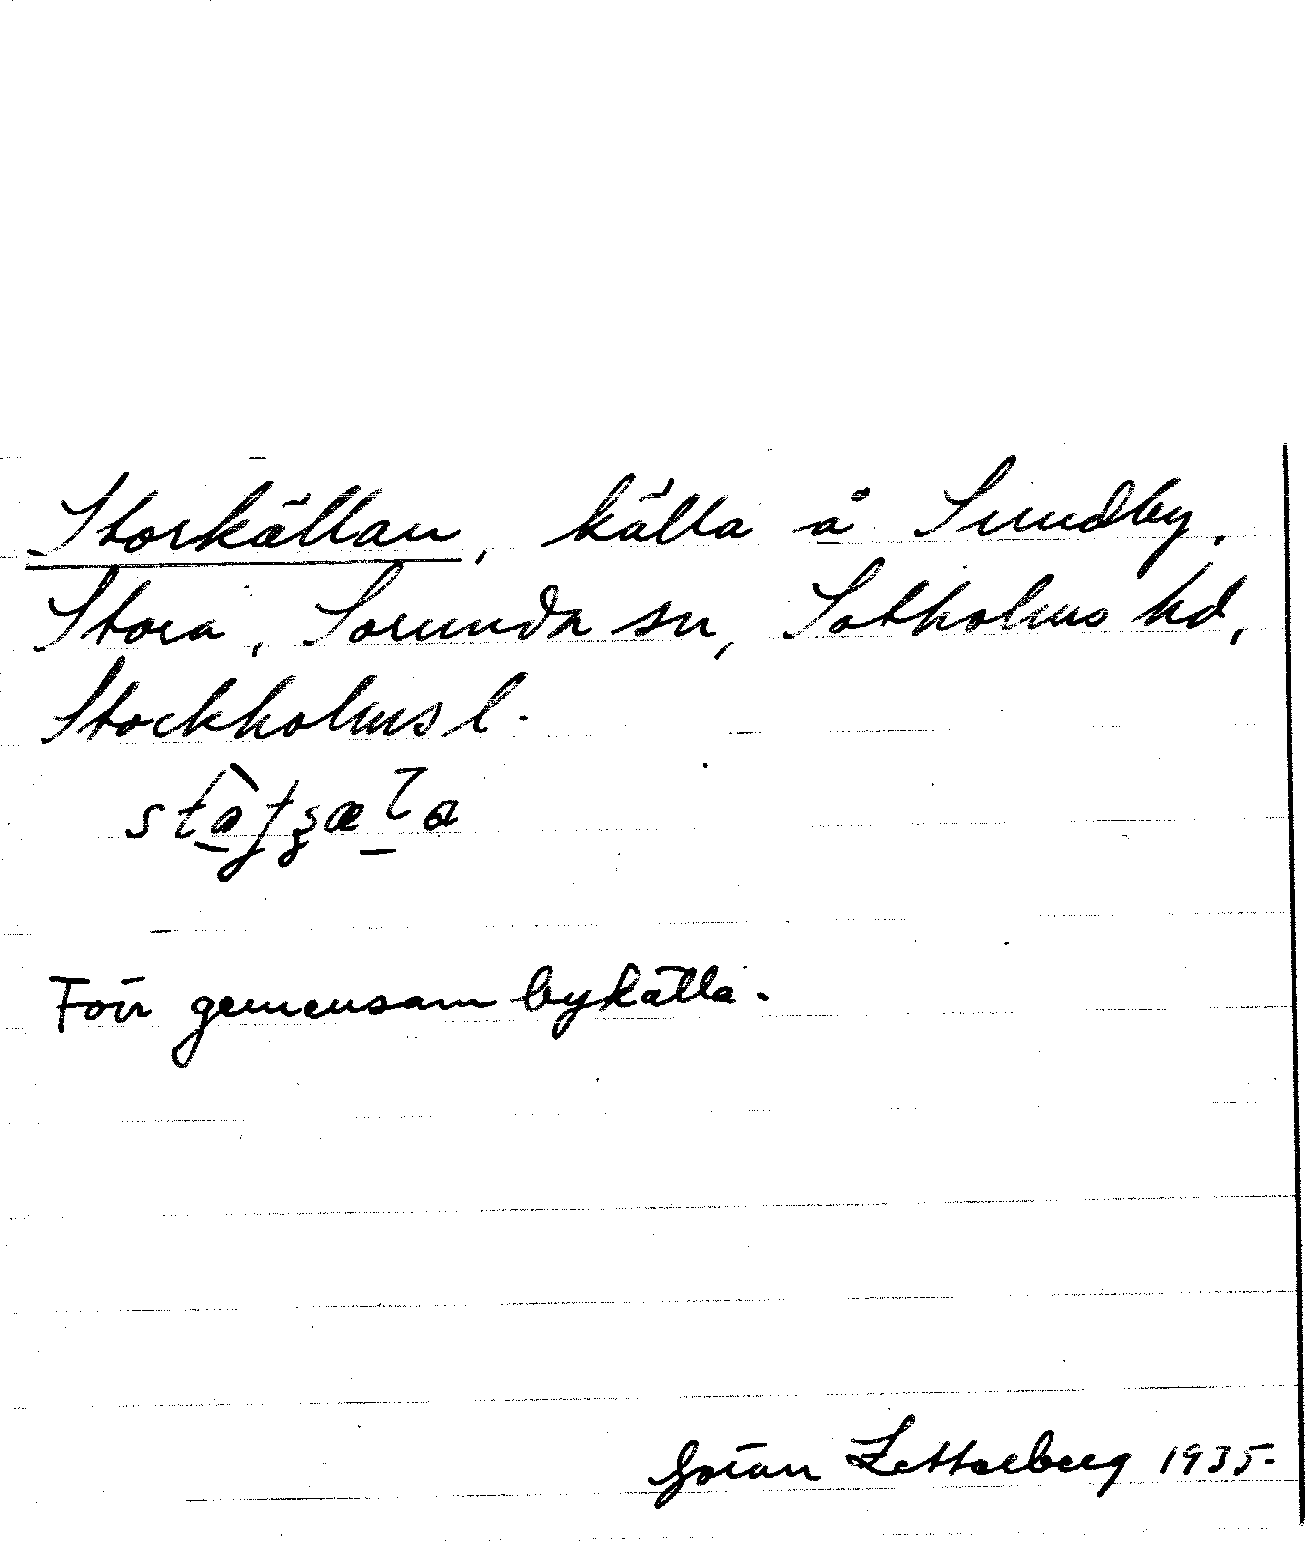 Storkällan, källa å Sundby,
Stora, Sorunda sn, Sotholms hd,
Stockholms l.
Förr gemensam bykälla.
Göran Zetterberg 1935.